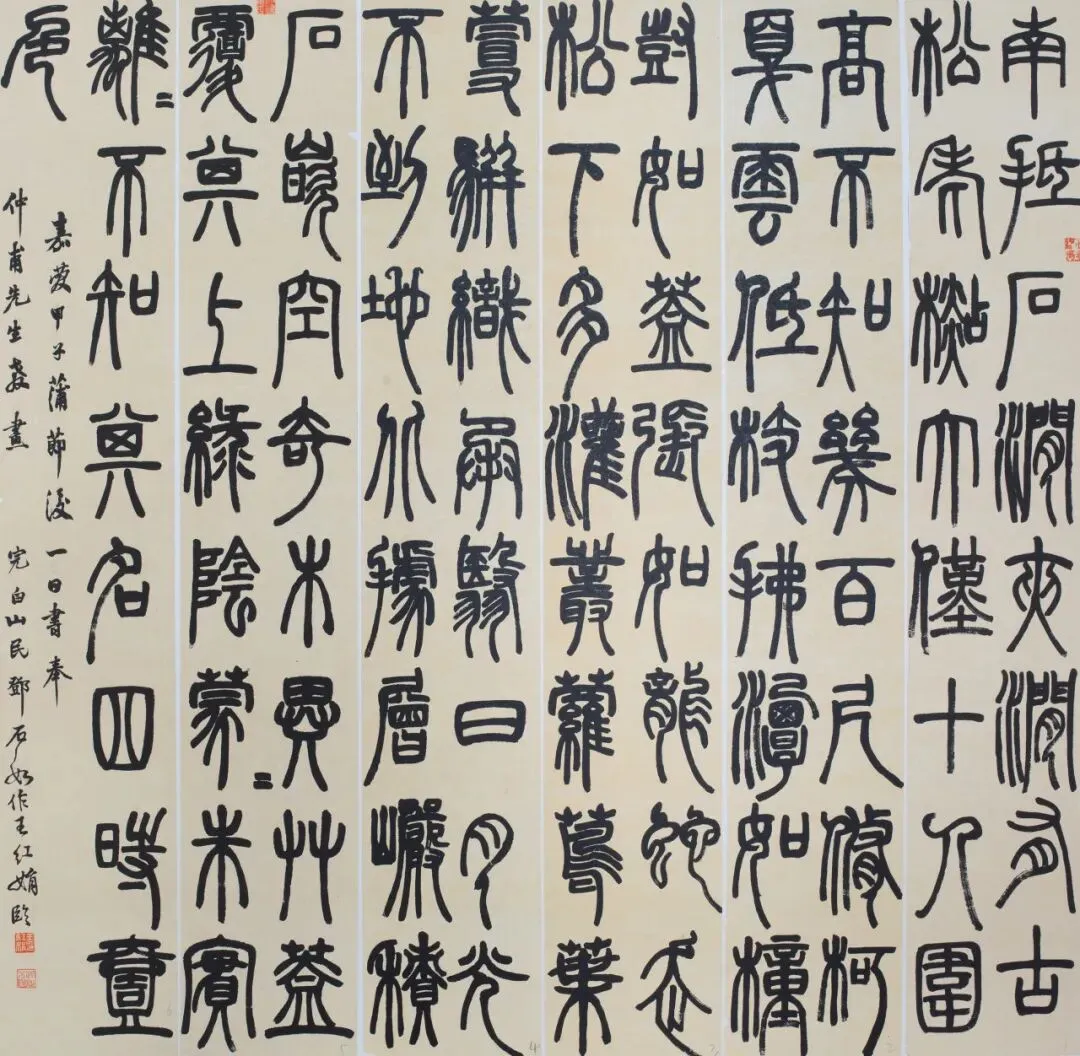 南抵石澗夾澗有古
松老杉大僅十人圍
高不知幾百尺脩柯
戛雲低枝拂潭如橦
尌如蓋張如龍蛇走
松下多灌叢蘿蔦葉
蔓駢織承翳日月光
不到地北據層巖積
石嵌空奇木異艸蓋
覆其上綠陰蒙〻朱實
離〻不知其名四時壹
色
嘉慶甲子蒲節後一日書奉
仲甫先生教畫 完白山民鄧石如作王紅娟臨